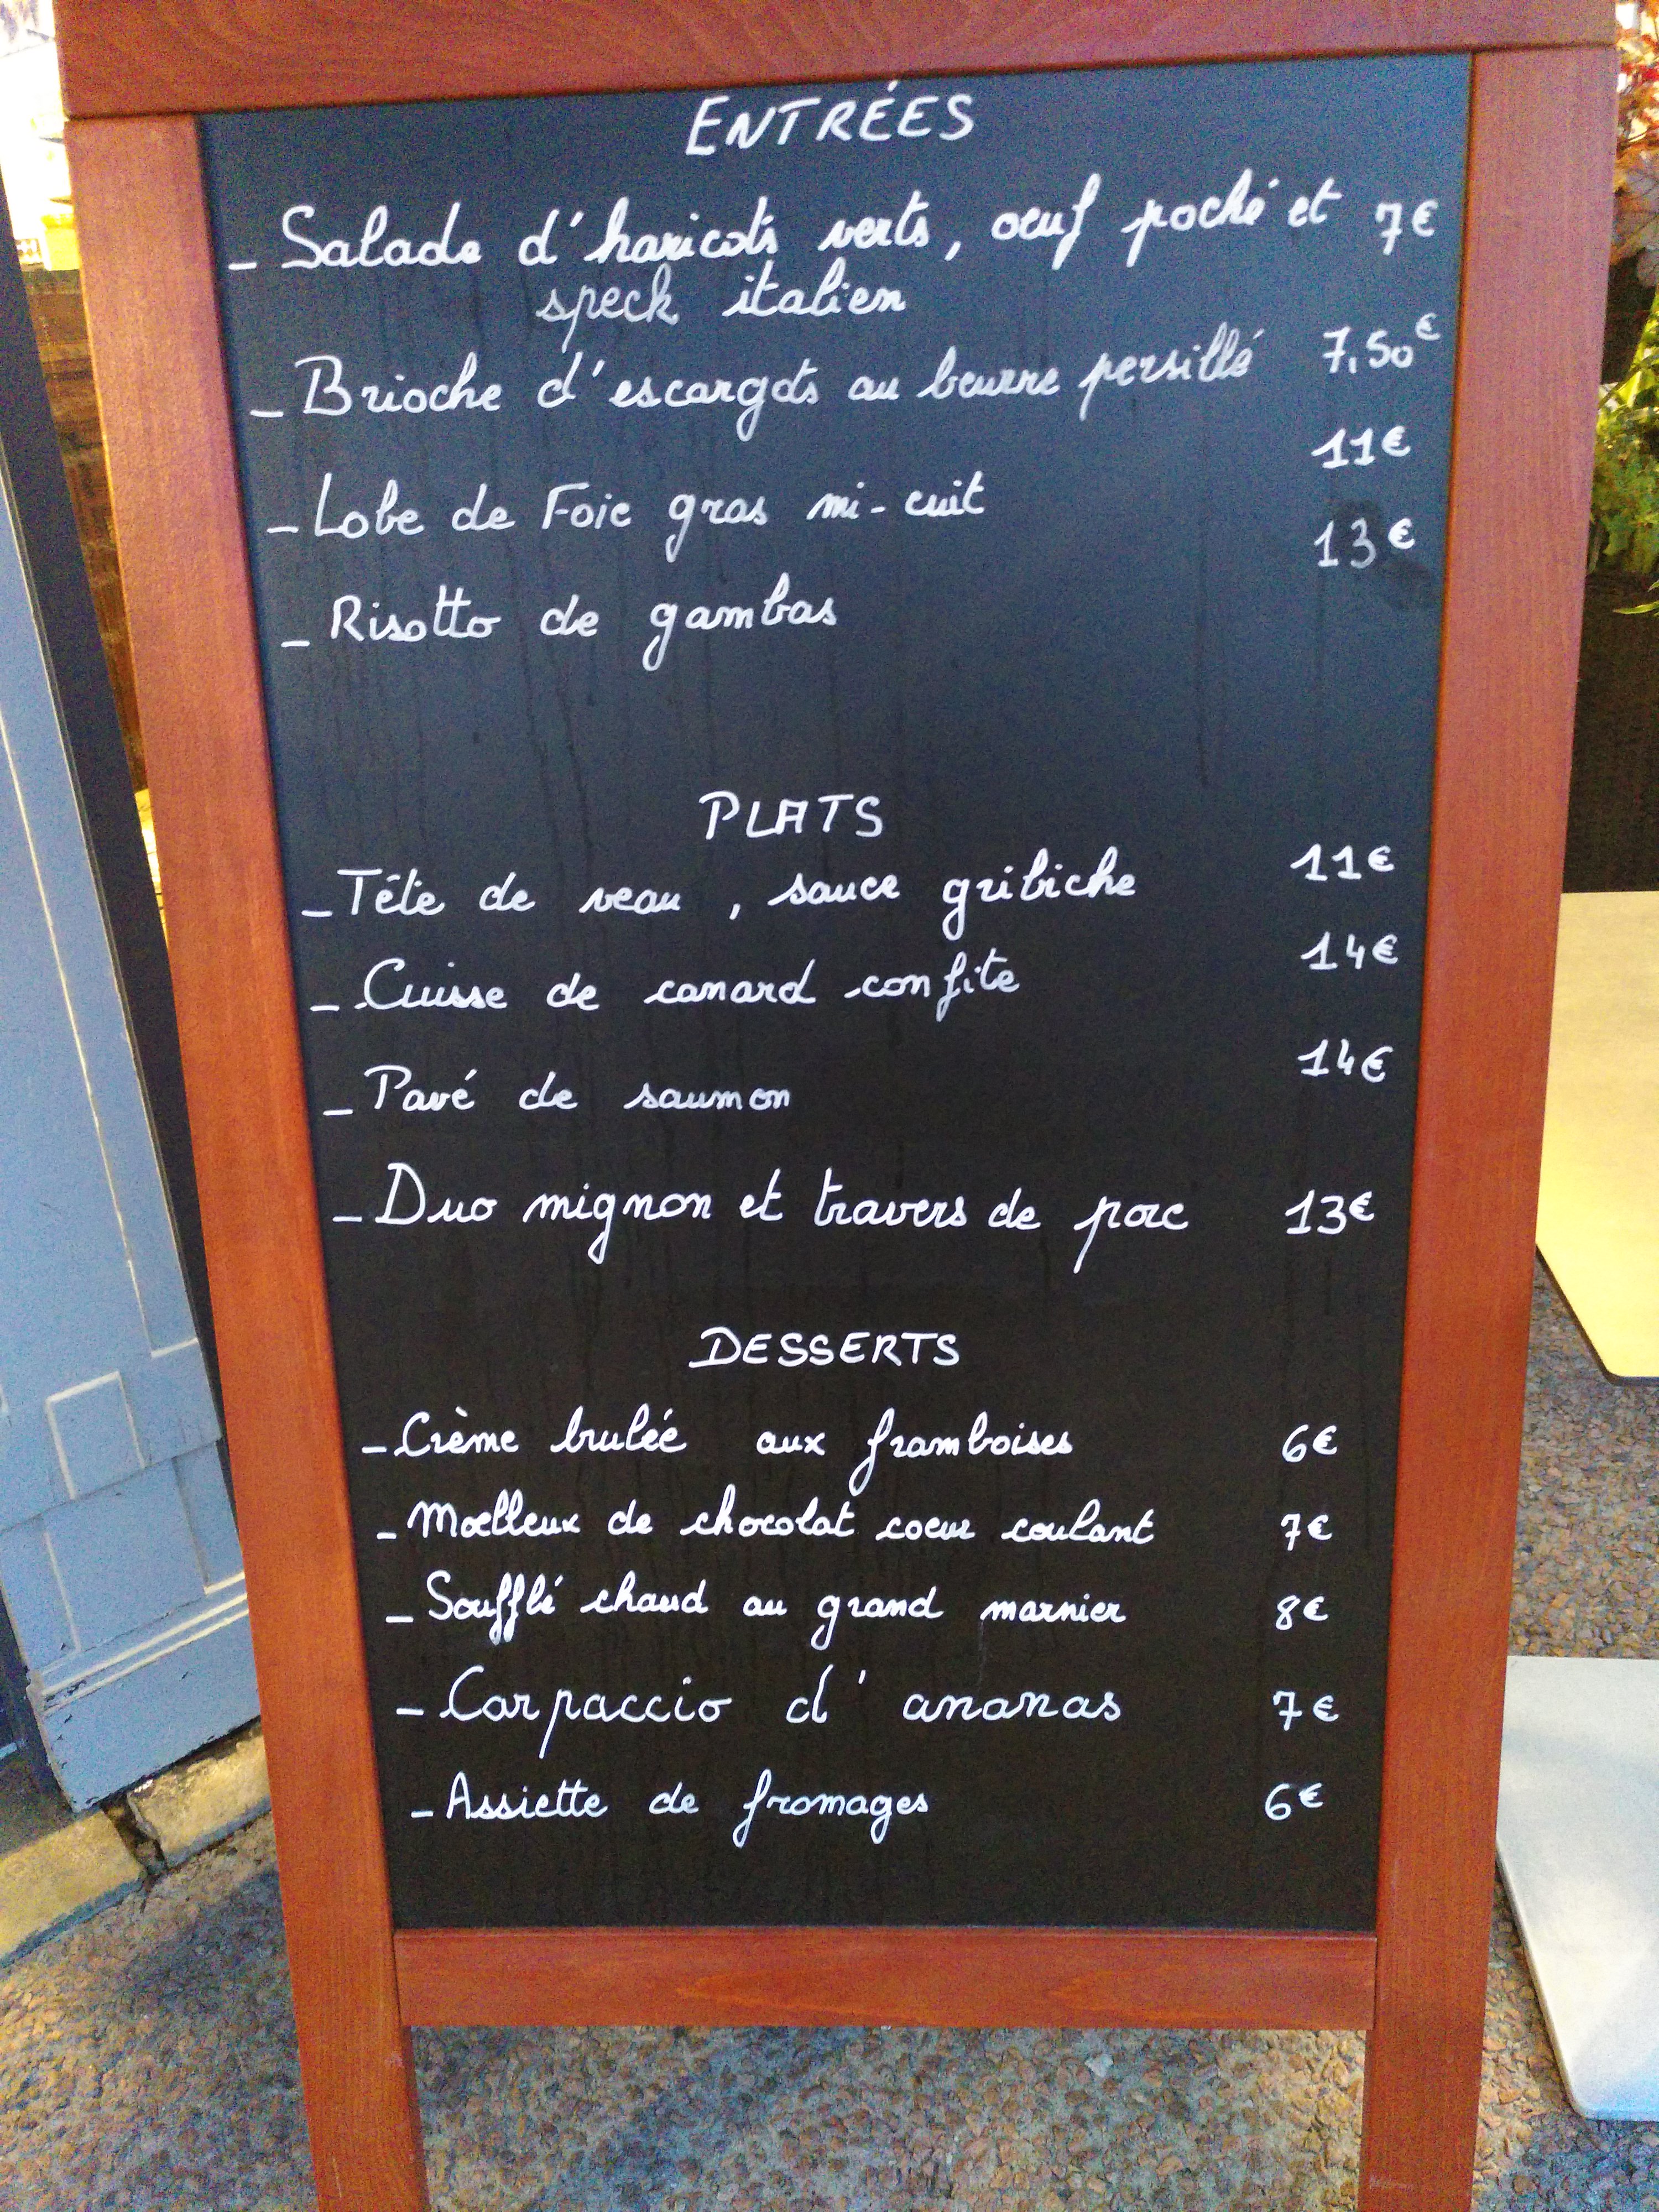 ENTRÉES
- Salade d'haricots verts, oeuf poché et 7€
speck italien
- Brioche d'escargots au beurre persillé 7,50€
- Lobe de Foie gras mi-cuit 11€
- Risotto de gambas 13€
PLATS
- Tête de veau, sauce gribiche 11€
- Cuisse de canard confite 14€
- Pavé de saumon 14€
- Duo mignon et travers de porc 13€
DESSERTS
- Crème brulée aux framboises 6€
- Moelleux de chocolat coeur coulant 7€
- Soufflé chaud au grand marnier 8€
- Carpaccio d'ananas 7€
- Assiette de fromages 6€